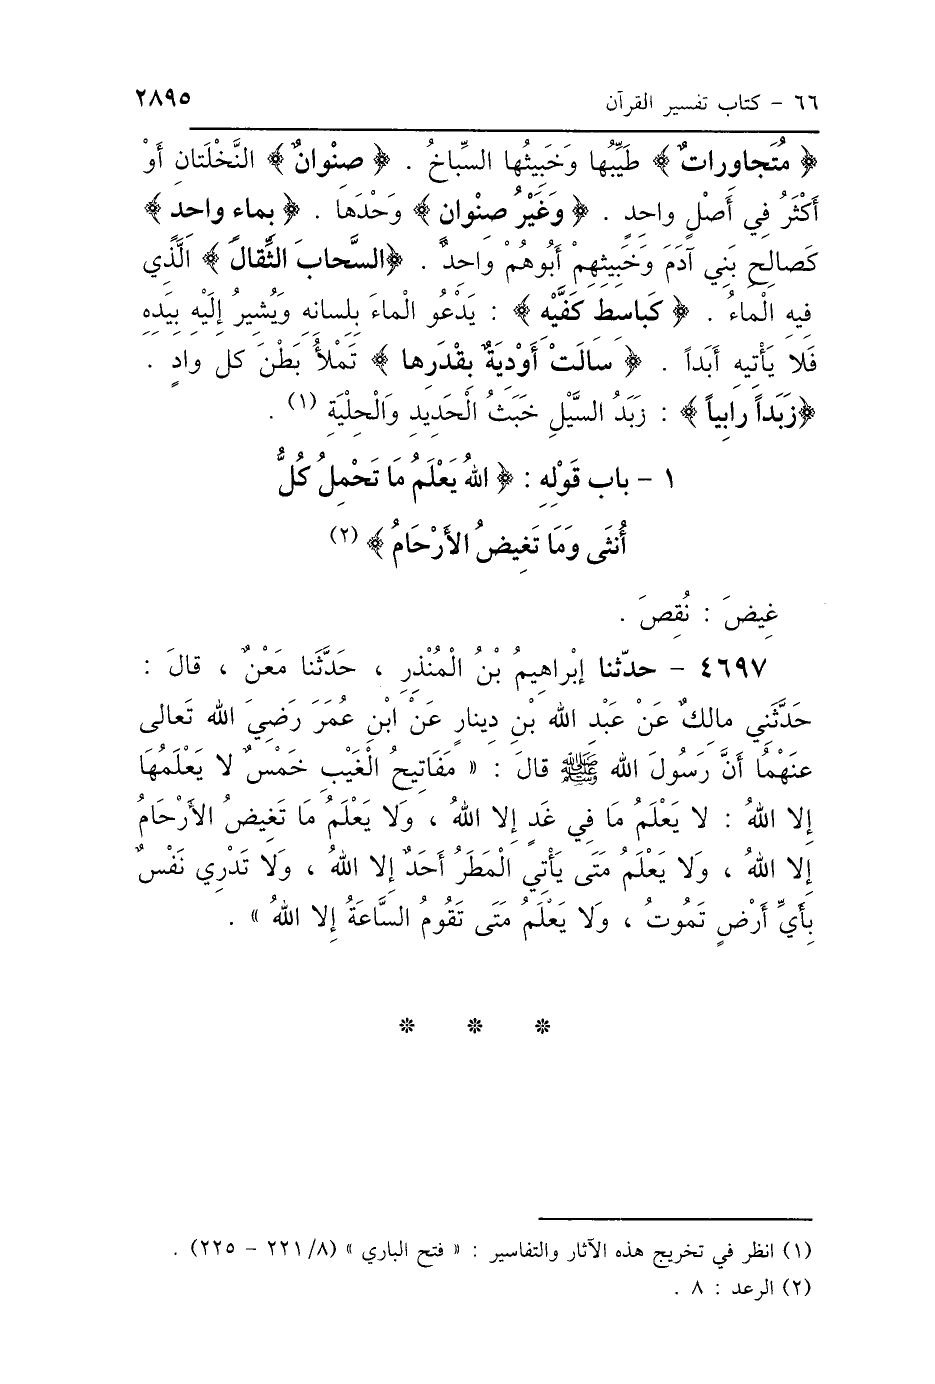 ٦٦ - كتاب تفسير القرآن ٢٨٩٥
﴿ مُتَجاوِراتٌ ﴾ طَيِّبُها وَخَبِيثُها السِّباخُ . ﴿ صِنْوانٌ ﴾ النَّخْلَتانِ أَوْ
أَكْثَرُ فِي أَصْلٍ واحِدٍ . ﴿ وَغَيْرُ صِنْوانٍ ﴾ وَحْدَها . ﴿ بِماءٍ واحِدٍ ﴾
كَصالِحِ بَنِي آدَمَ وَخَبِيثِهِمْ أَبُوهُمْ واحِدٌ . ﴿السَّحابَ الثِّقالَ ﴾ الَّذِي
فِيهِ الْماءُ . ﴿ كَباسِطِ كَفَّيْهِ ﴾ : يَدْعُو الْماءَ بِلِسانِهِ وَيُشِيرُ إِلَيْهِ بِيَدِهِ
فَلا يَأْتِيهِ أَبَداً . ﴿ سالَتْ أَوْدِيَةٌ بِقَدَرِها ﴾ تَمْلأُ بَطْنَ كل وادٍ .
﴿زَبَداً رابِياً ﴾ : زَبَدُ السَّيْلِ خَبَثُ الْحَدِيدِ وَالْحِلْيَةِ (١) .
١ - باب قَوْلِهِ : ﴿ اللهُ يَعْلَمُ مَا تَحْمِلُ كُلُّ
أُنثَى وَمَا تَغِيضُ الأَرْحَامُ ﴾ (٢)
غِيضَ : نُقِصَ .
٤٦٩٧ - حدّثنا إبْراهِيمُ بْنُ الْمُنْذِرِ ، حَدَّثَنا مَعْنٌ ، قالَ :
حَدَّثَنِي مالِكٌ عَنْ عَبْدِ الله بْنِ دِينارٍ عَنْ ابْنِ عُمَرَ رَضِيَ الله تَعالى
عَنْهُمُا أَنَّ رَسُولَ الله ﷺ قالَ : « مَفَاتِيحُ الْغَيْبِ خَمْسٌ لا يَعْلَمُهَا
إِلا اللهُ : لا يَعْلَمُ مَا فِي غَدٍ إِلا اللهُ ، وَلا يَعْلَمُ مَا تَغِيضُ الأَرْحَامُ
إِلا اللهُ ، وَلا يَعْلَمُ مَتَى يَأْتِي الْمَطَرُ أَحَدٌ إِلا اللهُ ، وَلا تَدْرِي نَفْسٌ
بِأَيِّ أَرْضٍ تَمُوتُ ، وَلا يَعْلَمُ مَتَى تَقُومُ السَّاعَةُ إِلا اللهُ » .
* * *
(١) انظر في تخريج هذه الآثار والتفاسير : « فتح الباري » (٨/ ٢٢١ - ٢٢٥) .
(٢) الرعد : ٨ .